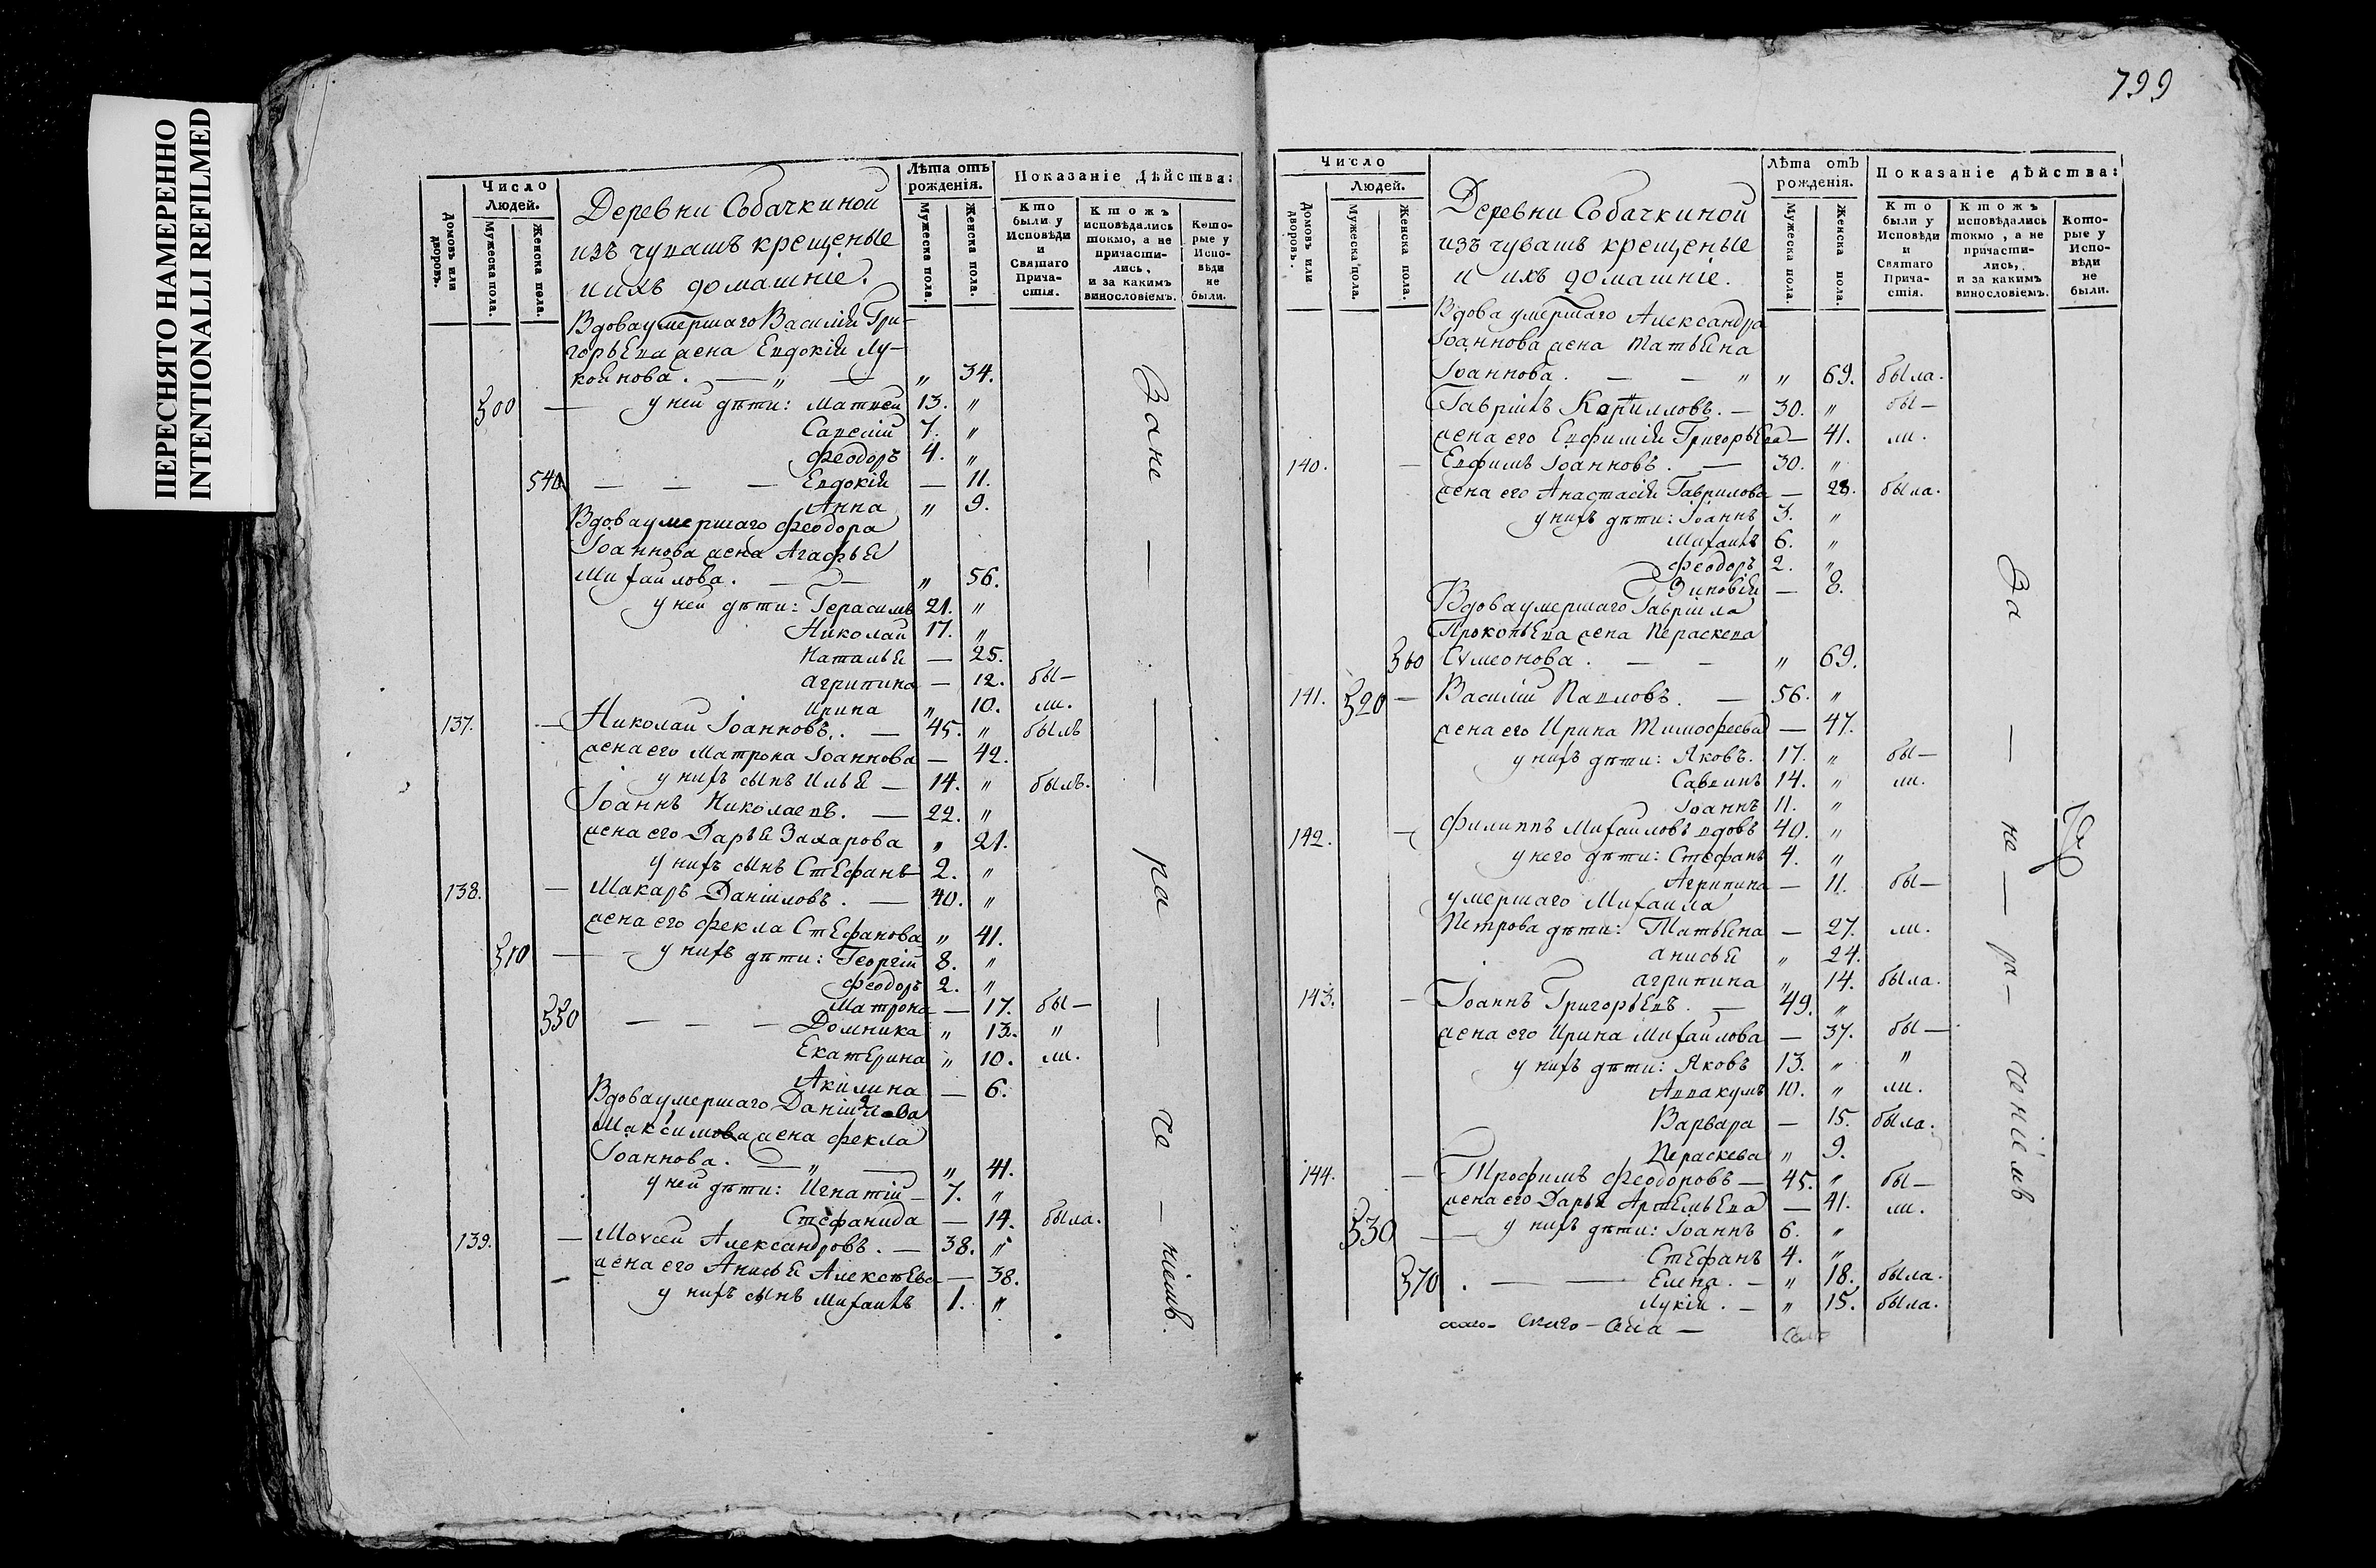 ПЕРЕСНЯТО НАМЕРЕННО
INTENTIONALLI REFILMED
Число
Людей.
Домовъ или дворовъ.
Мужеска пола.
Женска пола.
Деревни Собачкиной
изъ чувашъ крещеные
и ихъ домашніе.
Лѣта отъ
рожденія.
Мужеска пола.
Женска пола.
Показаніе дѣйства:
Кто
были у
Исповѣди
и
Святаго
Прича-
стія.
Ктожъ
исповѣдались
токмо, а не
причасти-
лись,
и за какимъ
винословіемъ.
Кото-
рые у
Испо-
вѣди
не
были.
Вдова умершаго Василія Гри-
горьева жена Евдокія Лу-
коянова. — „ — „ 34.
500 — у ней дѣти: Матвей 13. „
Савелій 7. „
Феодоръ 4. „
540 — — — Евдокія — 11.
Анна „ 9.
Вдова умершаго Феодора
Іоаннова жена Агафья
Михайлова. — — „ 56.
у ней дѣти: Герасимъ 21. „
Николай 17. „
Наталья — 25.
Агрипина — 12. бы—
Ирина „ 10. ли.
137. — Николай Іоанновъ. — 45. „ былъ
жена его Матрона Іоаннова — 42.
у нихъ сынъ Илья — 14. „ былъ.
Іоаннъ Николаевъ. — 22. „
жена его Дарья Захарова „ 21.
у нихъ сынъ Стефанъ 2. „
138. — Макаръ Даниловъ. — 40. „
жена его Фекла Стефанова „ 41.
510 — у нихъ дѣти: Георгій 8. „
Феодоръ 2. „
Матрона — 17. бы—
550 — — — Домника „ 13. „
Екатерина „ 10. ли.
Акилина — 6.
Вдова умершаго Данiила
Максимова жена Фекла
Іоаннова. — „ — „ 41.
у ней дѣти: Игнатій — 7. „
Стефанида — 14. была.
139. — Моѵсей Александровъ. — 38. „
жена его Анисья Алексѣева — 38.
— у нихъ сынъ Михаилъ 1. „
За не — — — ра — че — ніемъ.
799
Число
Людей.
Домовъ или дворовъ.
Мужеска пола.
Женска пола.
Деревни Собачкиной
изъ чувашъ крещеные
и ихъ домашніе.
Лѣта отъ
рожденія.
Мужеска пола.
Женска пола.
Показаніе дѣйства:
Кто
были у
Исповѣди
и
Святаго
Прича-
стія.
Ктожъ
исповѣдались
токмо, а не
причасти-
лись,
и за какимъ
винословіемъ.
Кото-
рые у
Испо-
вѣди
не
были.
Вдова умершаго Александра
Іоаннова жена Татьяна
Іоаннова. — — „ „ 69. была.
Гавріилъ Кириловъ. — 30. „ бы—
жена его Евфимія Григорьева — 41. ли.
140. — Евфимъ Іоанновъ. — 30. „
жена его Анастасія Гаврилова — 28. была.
у нихъ дѣти: Іоаннъ 3. „
Михаилъ 6. „
Феодоръ 2. „
Зиновія — 8.
Вдова умершаго Гавріила
Прокопьева жена Параскева
560 Сѵмеонова. — — „ 69.
141. 520 — Василій Павловъ. — 56. „
жена его Ирина Тимофеева — 47.
у нихъ дѣти: Яковъ. 17. „ бы—
Саввинъ 14. „ ли.
Іоаннъ 11. „
142. — Филиппъ Михайловъ вдовъ 40. „
у него дѣти: Стефанъ 4. „
Агрипина — 11. бы—
умершаго Михаила
Петрова дѣти: Татьяна — 27. ли.
Анисья „ 24.
Агрипина „ 14. была.
143. — Іоаннъ Григорьевъ. — 49. „
жена его Ирина Михайлова — 37. бы—
у нихъ дѣти: Яковъ 13. „ „
Аввакумъ 10. „ ли.
Варвара — 15. была.
Пераскева „ 9.
144. — Трофимъ Феодоровъ — 45. „ бы—
жена его Дарья Артемьева — 41. ли.
530 — у нихъ дѣти: Іоаннъ 6. „
Стефанъ 4. „
570 — — Елена. — „ 18. была.
Лукія. — „ 15. была.
За — не — ра — ченіемъ